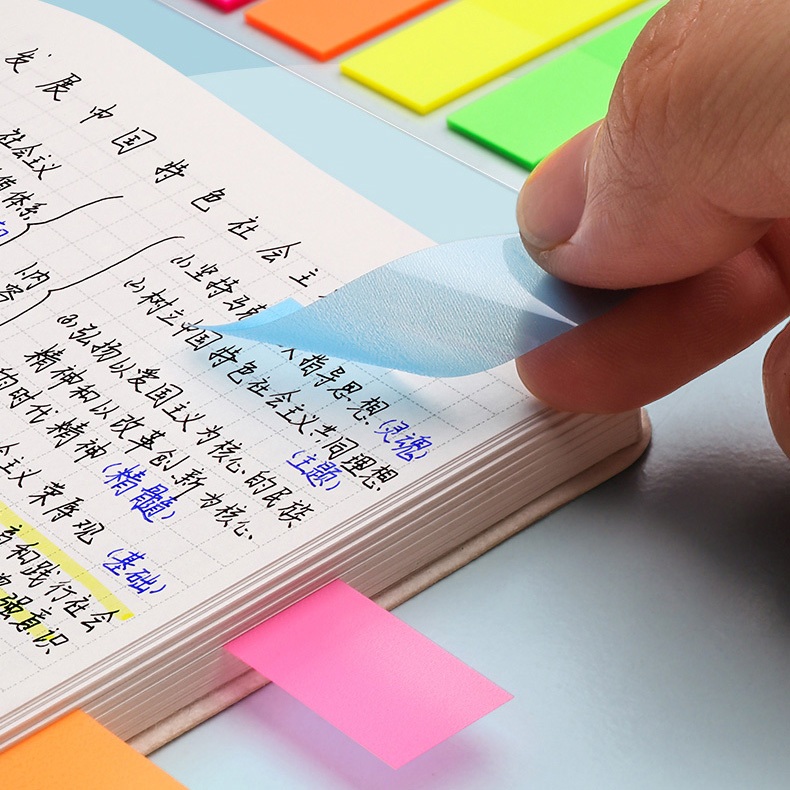 发展中国特色社会主
社会主义
值体系
内容
(1)坚持马 指导思想(灵魂)
(2)树立中国特色社会主义共同理想(主题)
(3)弘扬以爱国主义为核心的民族
精神和以改革创新为核心
的时代精神(精髓)
会主义荣辱观(基础)
和践行社会
强意识